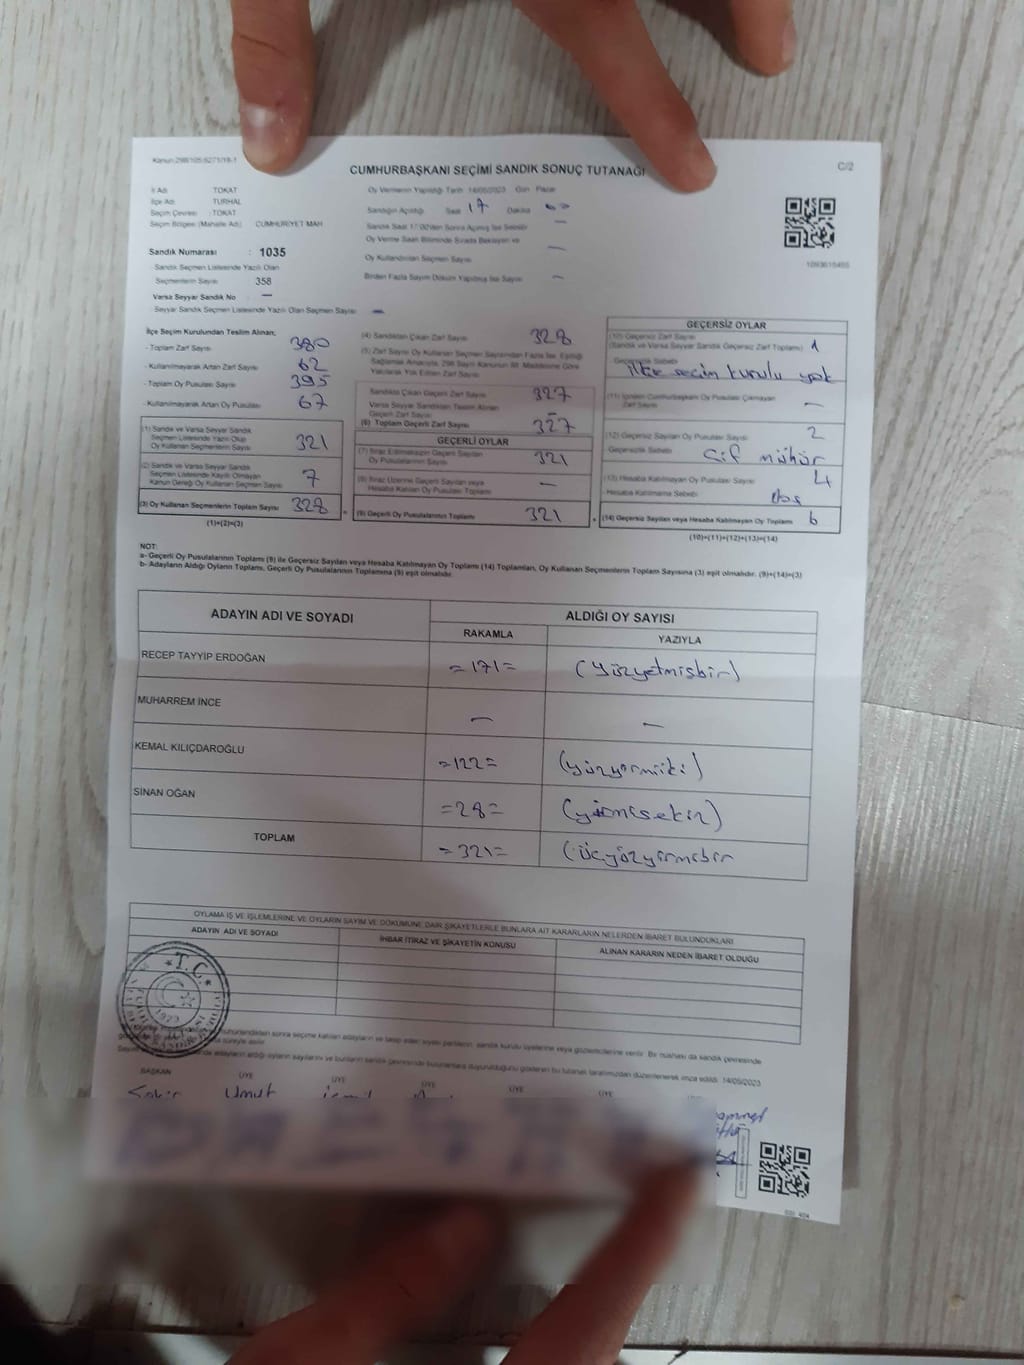 Kanun:298/105;6271/18-1
C/2
CUMHURBAŞKANI SEÇİMİ SANDIK SONUÇ TUTANAĞI
İl Adı TOKAT
İlçe Adı TURHAL
Seçim Çevresi TOKAT
Seçim Bölgesi (Mahalle Adı) CUMHURİYET MAH
Sandık Numarası : 1035
Sandık Seçmen Listesinde Yazılı Olan
Seçmenlerin Sayısı 358
Varsa Seyyar Sandık No —
Seyyar Sandık Seçmen Listesinde Yazılı Olan Seçmen Sayısı —
Oy Vermenin Yapıldığı Tarih 14/05/2023 Gün Pazar
Sandığın Açıldığı Saat 17 Dakika 00
Sandık Saat 17:00'den Sonra Açılmış İse Sebebi —
Oy Verme Saati Bitiminde Sırada Bekleyen ve
Oy Kullandırılan Seçmen Sayısı —
Birden Fazla Sayım Döküm Yapılmış İse Sayısı —
İlçe Seçim Kurulundan Teslim Alınan;
- Toplam Zarf Sayısı 380
- Kullanılmayarak Artan Zarf Sayısı 62
- Toplam Oy Pusulası Sayısı 395
- Kullanılmayarak Artan Oy Pusulası 67
(1) Sandık ve Varsa Seyyar Sandık
Seçmen Listesinde Yazılı Olup
Oy Kullanan Seçmenlerin Sayısı 321
(2) Sandık ve Varsa Seyyar Sandık
Seçmen Listesinde Kayıtlı Olmayan
Kanun Gereği Oy Kullanan Seçmen Sayısı 7
(3) Oy Kullanan Seçmenlerin Toplam Sayısı 328
(1)+(2)=(3)
(4) Sandıktan Çıkan Zarf Sayısı 328
(5) Zarf Sayısı Oy Kullanan Seçmen Sayısından Fazla İse, Eşitliği
Sağlamak Amacıyla, 298 Sayılı Kanunun 98. Maddesine Göre
Yakılarak Yok Edilen Zarf Sayısı
Sandıkta Çıkan Geçerli Zarf Sayısı 327
Varsa Seyyar Sandıktan Teslim Alınan
Geçerli Zarf Sayısı —
(6) Toplam Geçerli Zarf Sayısı 327
GEÇERLİ OYLAR
(7) İtiraz Edilmeksizin Geçerli Sayılan
Oy Pusulalarının Sayısı 321
(8) İtiraz Üzerine Geçerli Sayılan veya
Hesaba Katılan Oy Pusulası Toplamı —
(9) Geçerli Oy Pusulalarının Toplamı 321
GEÇERSİZ OYLAR
(10) Geçersiz Zarf Sayısı
(Sandık ve Varsa Seyyar Sandık Geçersiz Zarf Toplamı) 1
Geçersizlik Sebebi
ilçe seçim kurulu yok
(11) İçinden Cumhurbaşkanı Oy Pusulası Çıkmayan
Zarf Sayısı —
(12) Geçersiz Sayılan Oy Pusulası Sayısı 2
Geçersizlik Sebebi Çif mühür
(13) Hesaba Katılmayan Oy Pusulası Sayısı 4
Hesaba Katılmama Sebebi Boş
(14) Geçersiz Sayılan veya Hesaba Katılmayan Oy Toplamı 6
(10)+(11)+(12)+(13)=(14)
NOT:
a- Geçerli Oy Pusulalarının Toplamı (9) ile Geçersiz Sayılan veya Hesaba Katılmayan Oy Toplamı (14) Toplamları, Oy Kullanan Seçmenlerin Toplam Sayısına (3) eşit olmalıdır. (9)+(14)=(3)
b- Adayların Aldığı Oyların Toplamı, Geçerli Oy Pusulalarının Toplamına (9) eşit olmalıdır.
ADAYIN ADI VE SOYADI ALDIĞI OY SAYISI
RAKAMLA YAZIYLA
RECEP TAYYİP ERDOĞAN =171= (yüzyetmişbir)
MUHARREM İNCE — —
KEMAL KILIÇDAROĞLU =122= (yüzyirmiiki)
SİNAN OĞAN =28= (yirmisekiz)
TOPLAM =321= (üçyüzyirmibir
OYLAMA İŞ VE İŞLEMLERİNE VE OYLARIN SAYIM VE DÖKÜMÜNE DAİR ŞİKAYETLERLE BUNLARA AİT KARARLARIN NELERDEN İBARET BULUNDUKLARI
ADAYIN ADI VE SOYADI İHBAR İTİRAZ VE ŞİKAYETİN KONUSU ALINAN KARARIN NEDEN İBARET OLDUĞU
T.C.
1923
mühürlendikten sonra seçime katılan adayların ve talep eden siyasi partilerin sandık kurulu üyelerine veya gözlemcilerine verilir. Bir nüshası da sandık çevresinde
adayların aldığı oyların sayılarını ve bunların sandık çevresinde bulunanlara duyurulduğunu gösteren bu tutanak tarafımızdan düzenlenerek imza edildi. 14/05/2023
BAŞKAN ÜYE ÜYE ÜYE ÜYE ÜYE
Umut